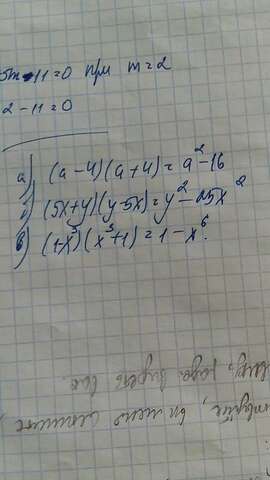 5m-11=0 при m=2
2-11=0
а) (a-4)(a+4)=a²-16
б) (5x+y)(y-5x)=y²-25x²
в) (1-x³)(x³+1)=1-x⁶.